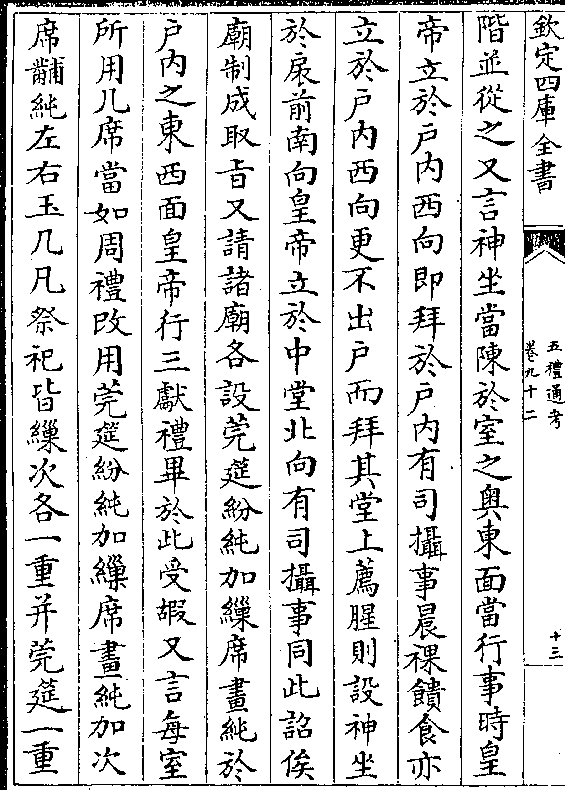 欽定四庫全書
五禮通考
卷九十二
十三
階並從之又言神坐當陳於室之奧東面當行事時皇
帝立於戶内西向即拜於戶内有司攝事晨祼饋食亦
立於戶内西向更不出戶而拜其堂上薦腥則設神坐
於扆前南向皇帝立於中堂北向有司攝事同此詔俟
廟制成取旨又請諸廟各設莞筵紛純加繅席畫純於
戶内之東西面皇帝行三獻禮畢於此受嘏又言每室
所用几席當如周禮改用莞筵紛純加繅席畫純加次
席黼純左右玉几凡祭祀皆繅次各一重并莞筵一重